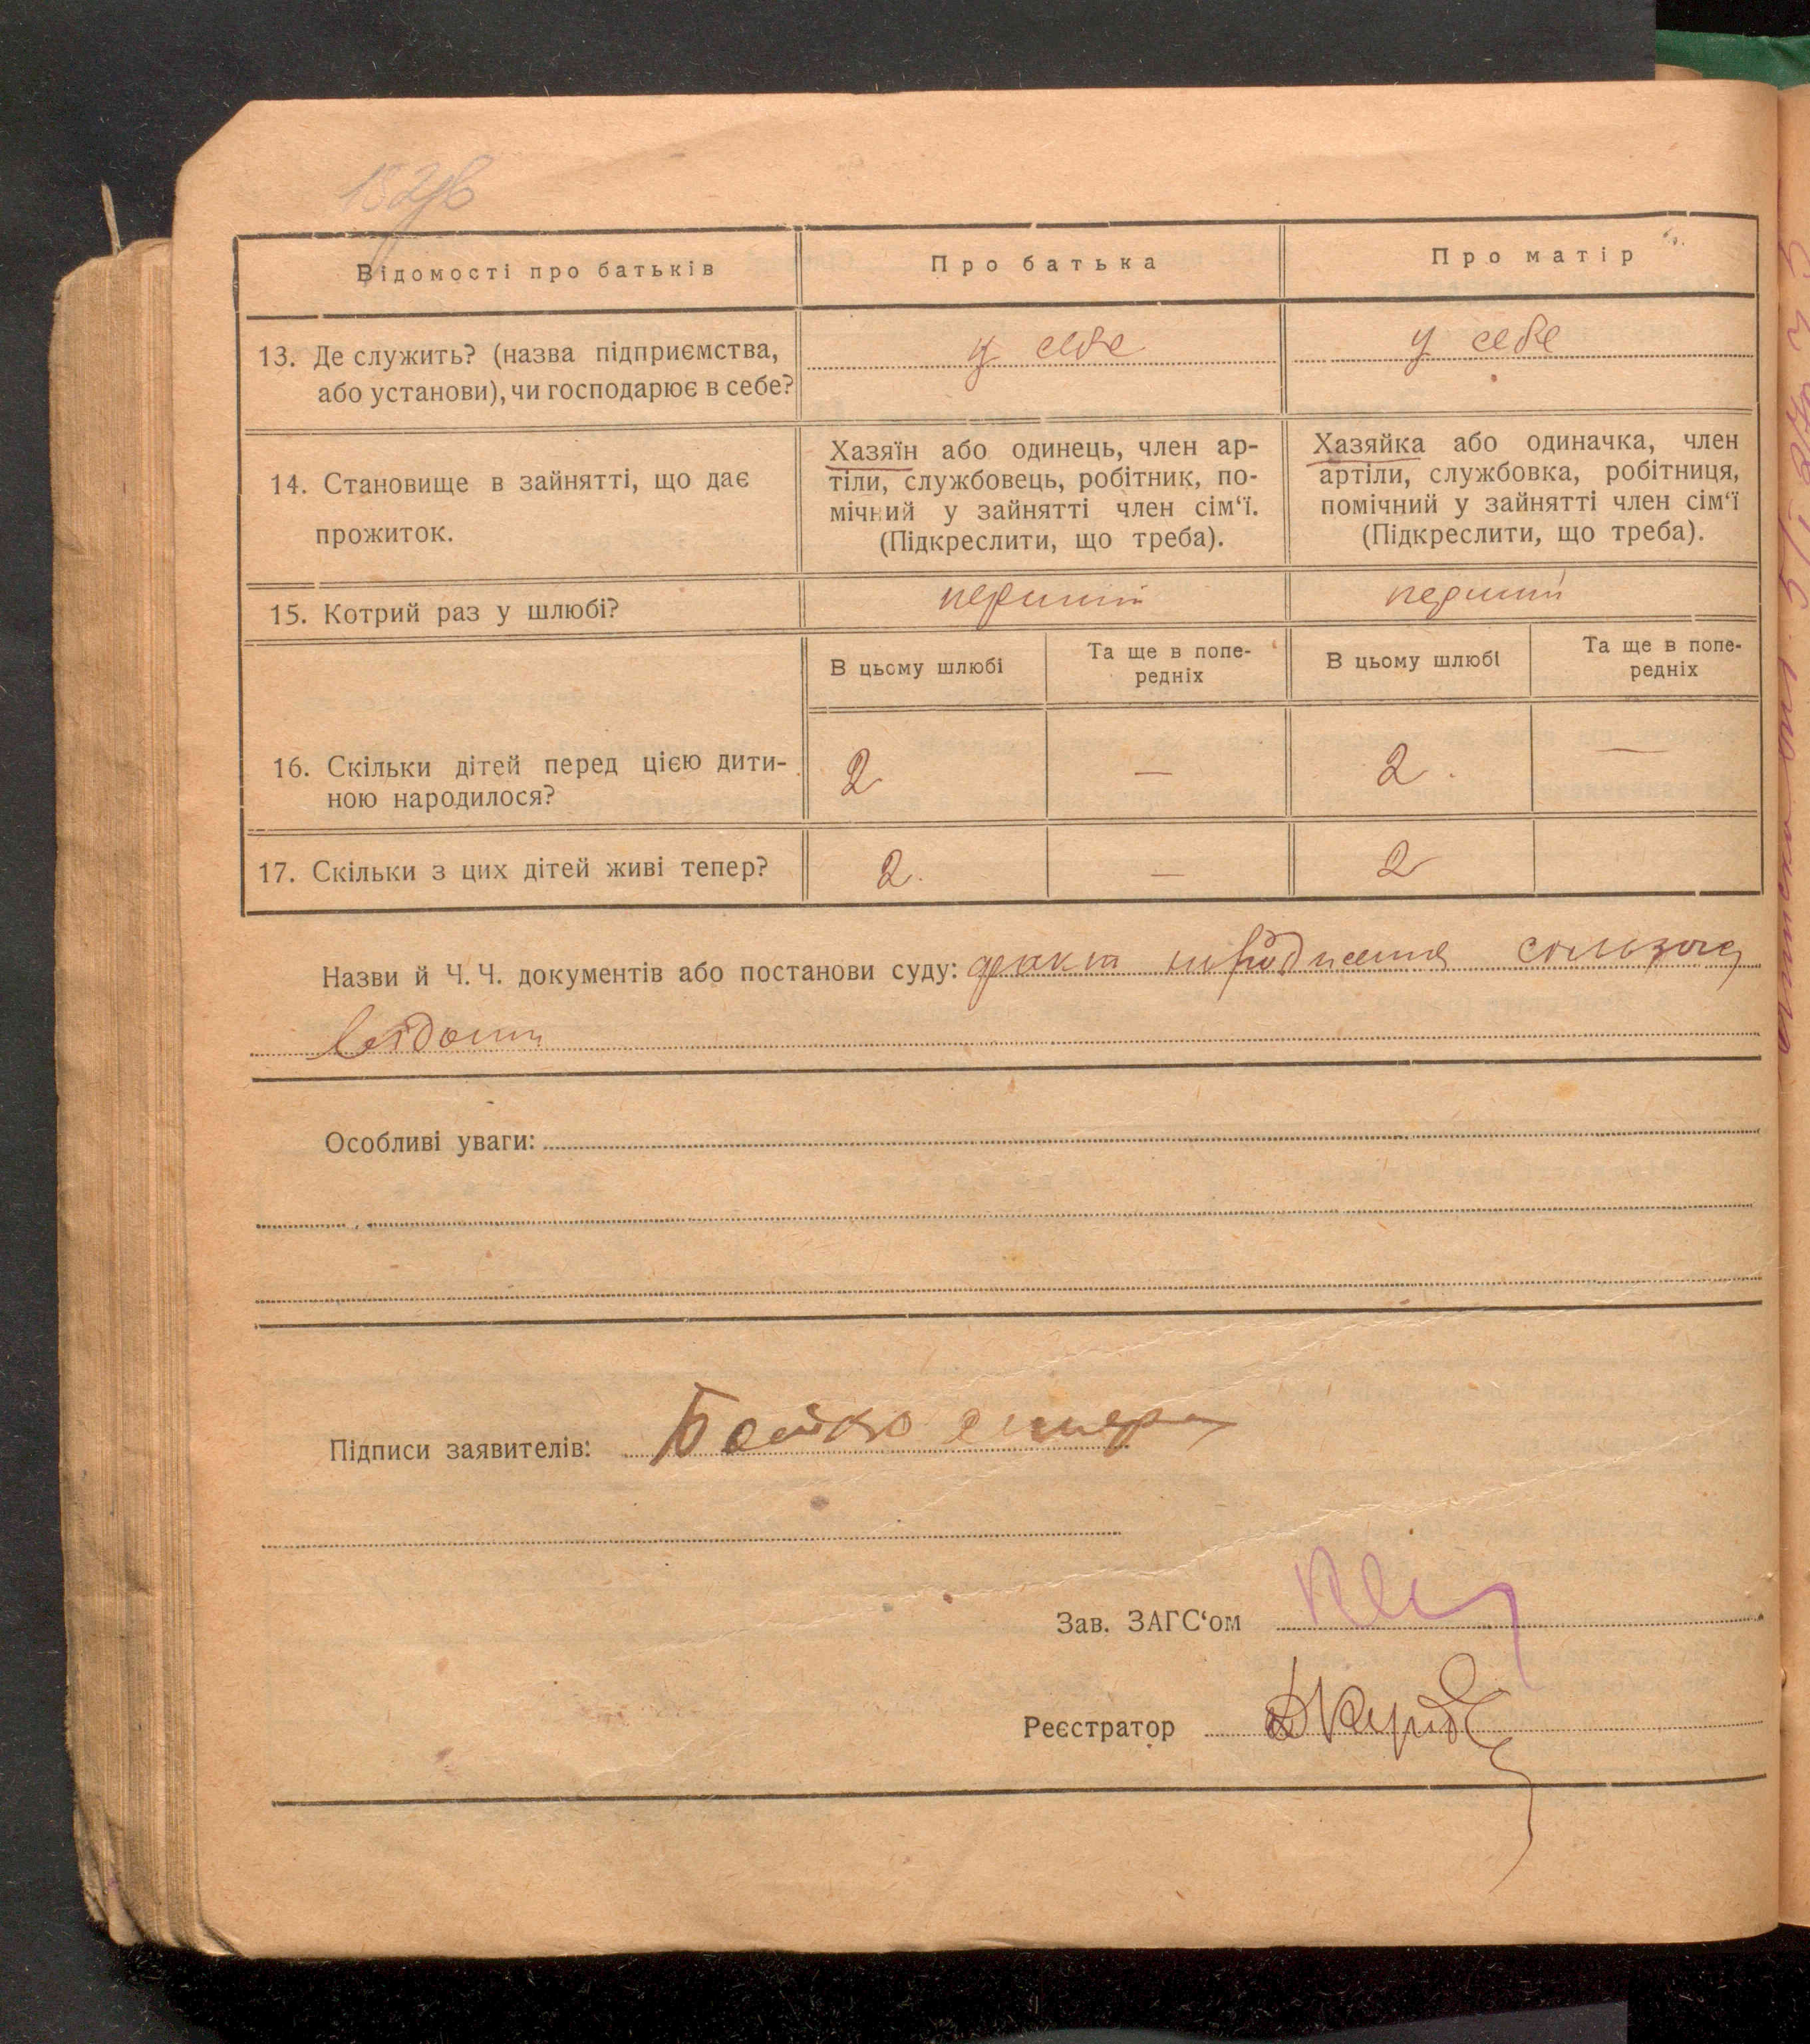 152зв
Відомості про батьків
Про батька
Про матір
13. Де служить? (назва підприємства,
або установи), чи господарює в себе?
у себе
у себе
14. Становище в зайнятті, що дає
прожиток.
Хазяїн або одинець, член ар-
тіли, службовець, робітник, по-
мічний у зайнятті член сім‘ї.
(Підкреслити, що треба).
Хазяйка або одиначка, член
артіли, службовка, робітниця,
помічний у зайнятті член сім‘ї
(Підкреслити, що треба).
15. Котрий раз у шлюбі?
перший
перший
В цьому шлюбі
Та ще в попе-
редніх
В цьому шлюбі
Та ще в попе-
редніх
16. Скільки дітей перед цією дити-
ною народилося?
2
—
2
—
17. Скільки з цих дітей живі тепер?
2
—
2
Назви й Ч. Ч. документів або постанови суду: факт народження
Особливі уваги:
Підписи заявителів: Бойко
Зав. ЗАГС‘ом
Реєстратор